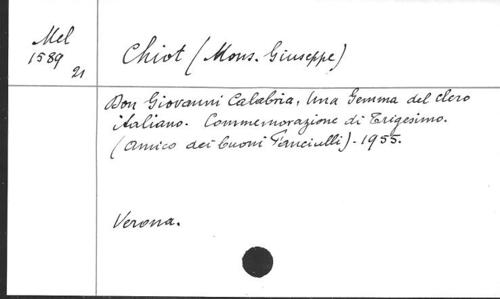 Mel
1589
21
Chiot (Mons. Giuseppe)
Don Giovanni Calabria, Una Gemma del clero
italiano. Commemorazione di Trigesimo.
(Amico dei buoni Fanciulli). 1955.
Verona.